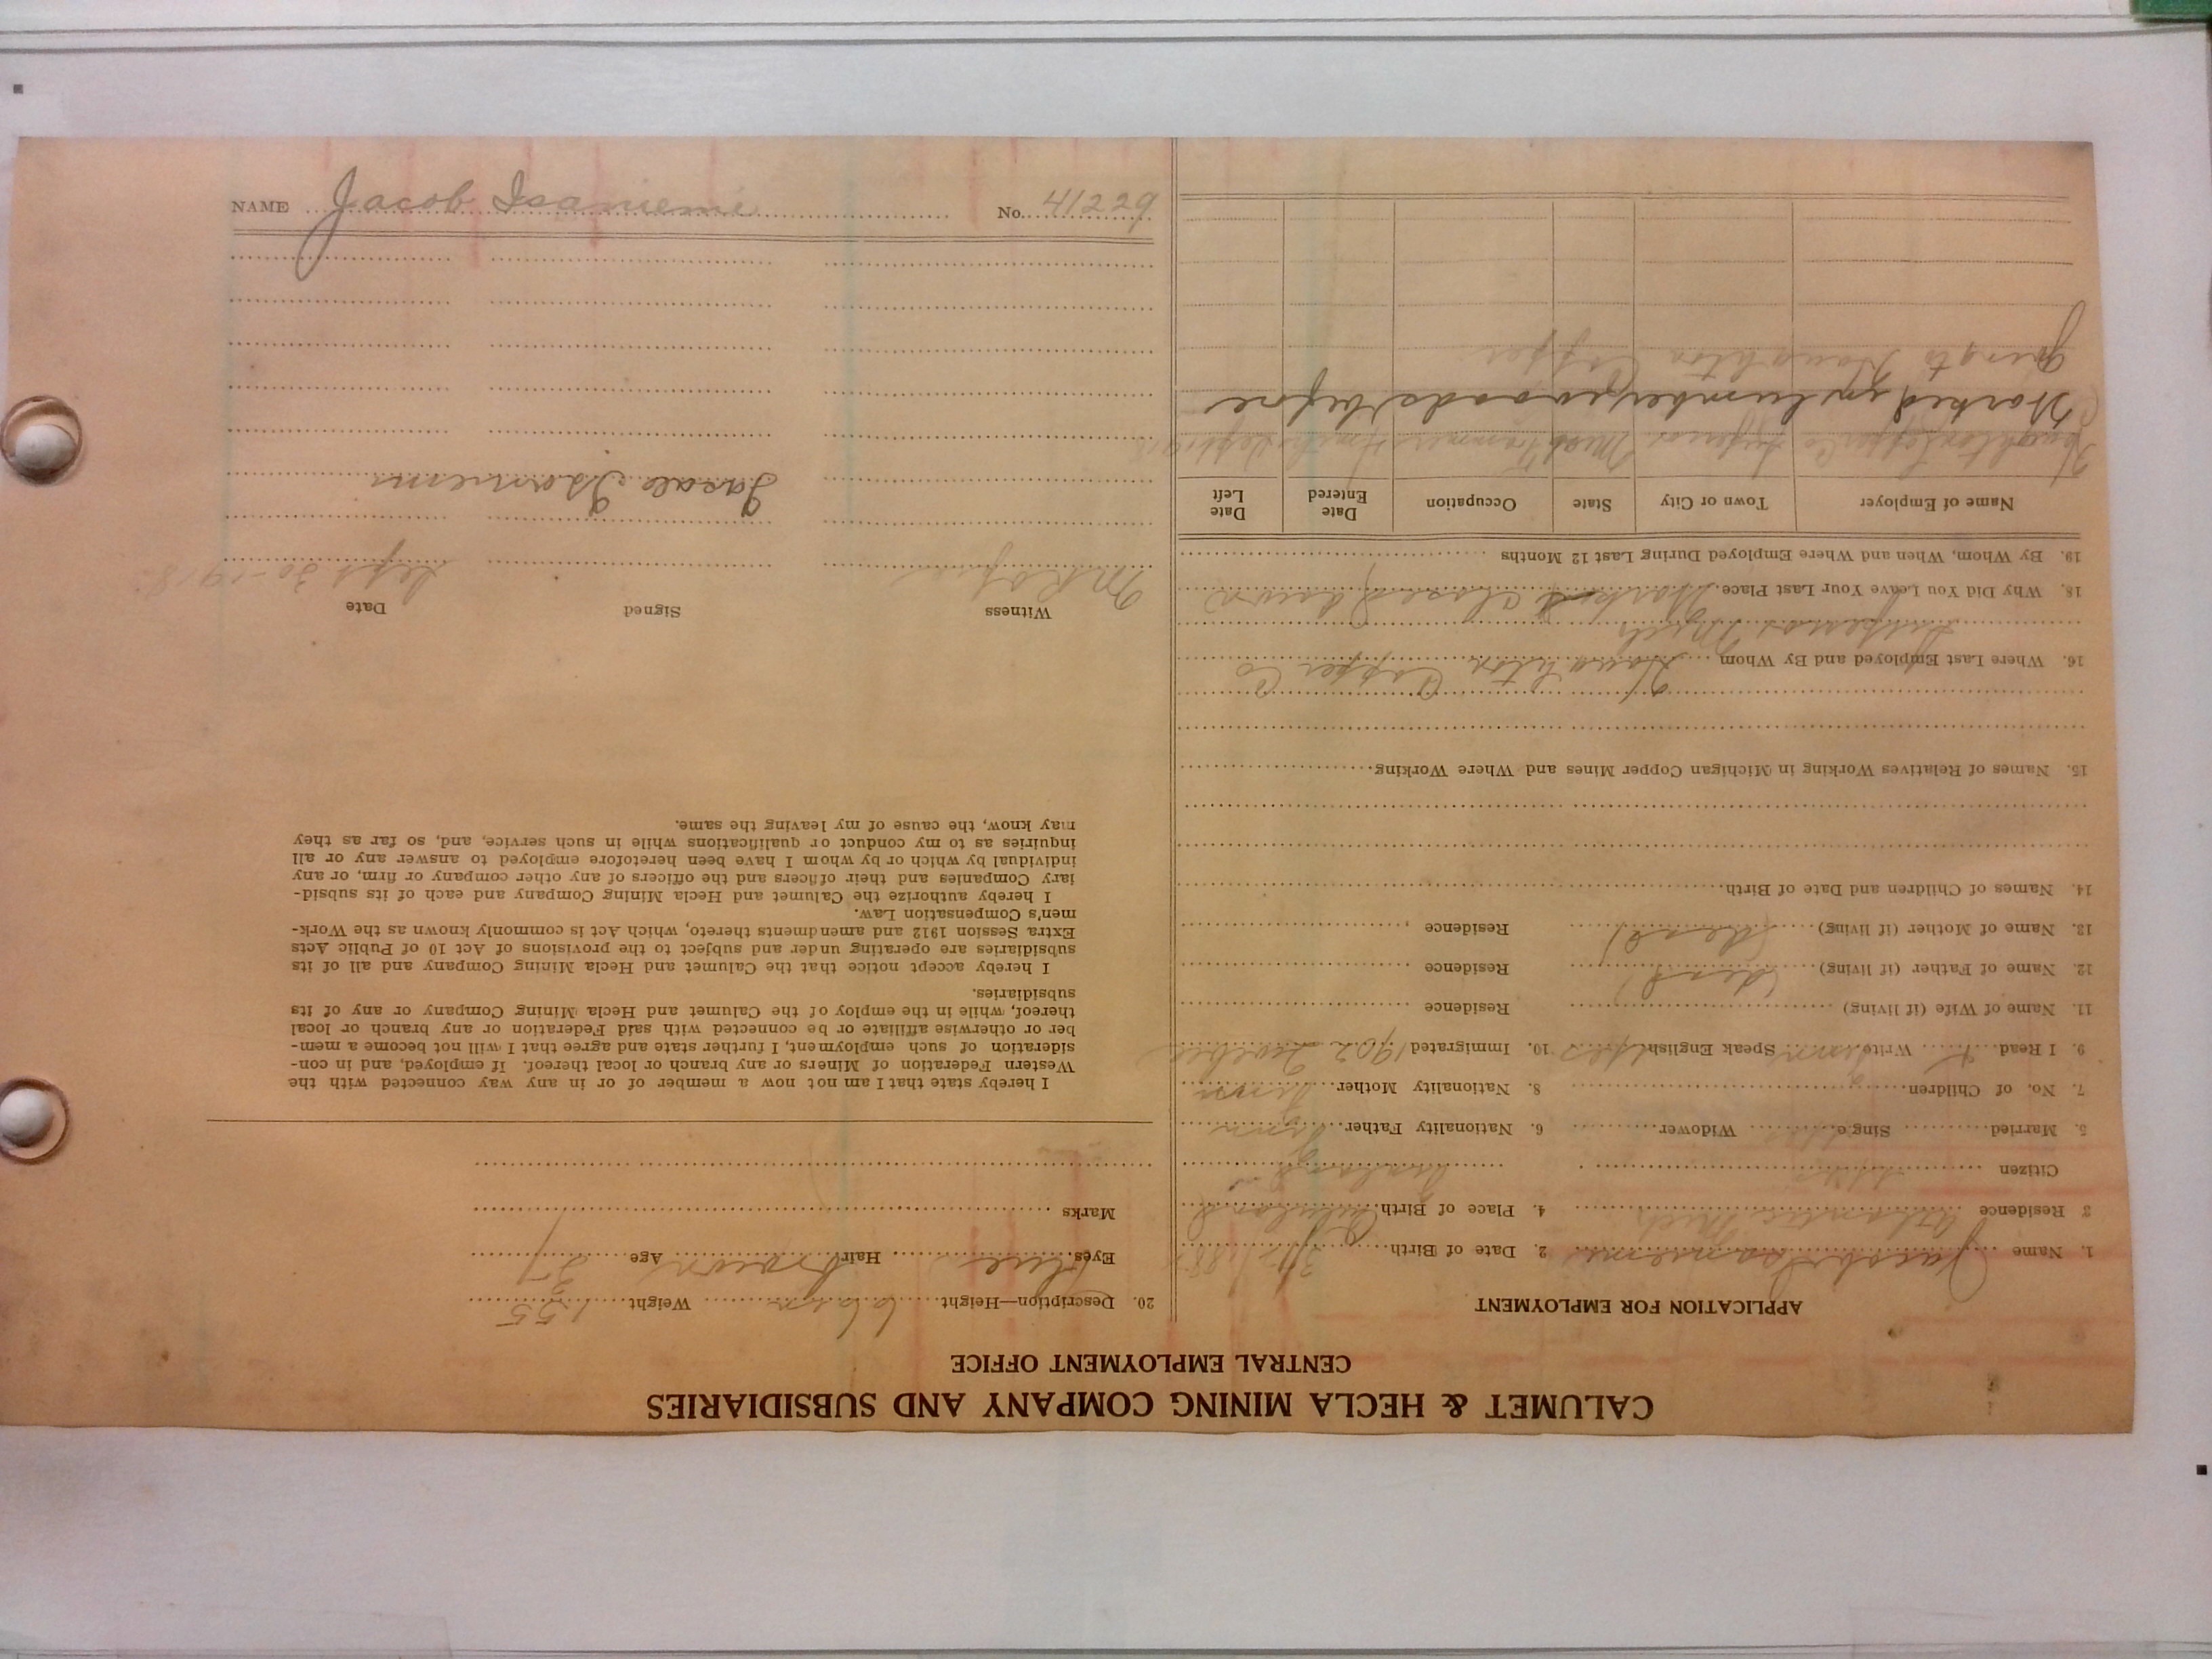 CALUMET & HECLA MINING COMPANY AND SUBSIDIARIES
CENTRAL EMPLOYMENT OFFICE
APPLICATION FOR EMPLOYMENT
1. Name Jacob Isaniemi 2. Date of Birth
3 Residence Atlantic Mich 4. Place of Birth
Citizen
5. Married Single Widower 6. Nationality Father Finn
7. No. of Children 8. Nationality Mother Finn
9. I Read Write Finn Speak English yes 10. Immigrated 1902
11. Name of Wife (if living) Residence
12. Name of Father (if living) (dead) Residence
13. Name of Mother (if living) (dead) Residence
14. Names of Children and Date of Birth
15. Names of Relatives Working in Michigan Copper Mines and Where Working
16. Where Last Employed and By Whom Houghton Copper Co
Superior Mich
18. Why Did You Leave Your Last Place. Worked close down
19. By Whom, When and Where Employed During Last 12 Months
Name of Employer Town or City State Occupation Date Entered Date Left
Houghton Copper Co Superior Mich Trammer Sept 1918
Worked in lumber woods before
going to Houghton Copper
20. Description—Height 6 Weight 155
Eyes Blue Hair brown Age 37
Marks
I hereby state that I am not now a member of or in any way connected with the
Western Federation of Miners or any branch or local thereof. If employed, and in con-
sideration of such employment, I further state and agree that I will not become a mem-
ber or otherwise affiliate or be connected with said Federation or any branch or local
thereof, while in the employ of the Calumet and Hecla Mining Company or any of its
subsidiaries.
I hereby accept notice that the Calumet and Hecla Mining Company and all of its
subsidiaries are operating under and subject to the provisions of Act 10 of Public Acts
Extra Session 1912 and amendments thereto, which Act is commonly known as the Work-
men's Compensation Law.
I hereby authorize the Calumet and Hecla Mining Company and each of its subsid-
iary Companies and their officers and the officers of any other company or firm, or any
individual by which or by whom I have been heretofore employed to answer any or all
inquiries as to my conduct or qualifications while in such service, and, so far as they
may know, the cause of my leaving the same.
Witness Signed Date
Sept 30-1918
Jacob Isaniemi
NAME Jacob Isaniemi No. 41229